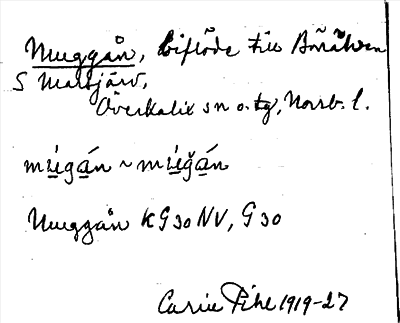 Muggån, biflöde till Bönälven
S Marsjärv,
Överkalix sn o. tg, Norrb. l.
múgán ~ múğán
Muggån KG30NV, G30
Carin Pihl 1919-27